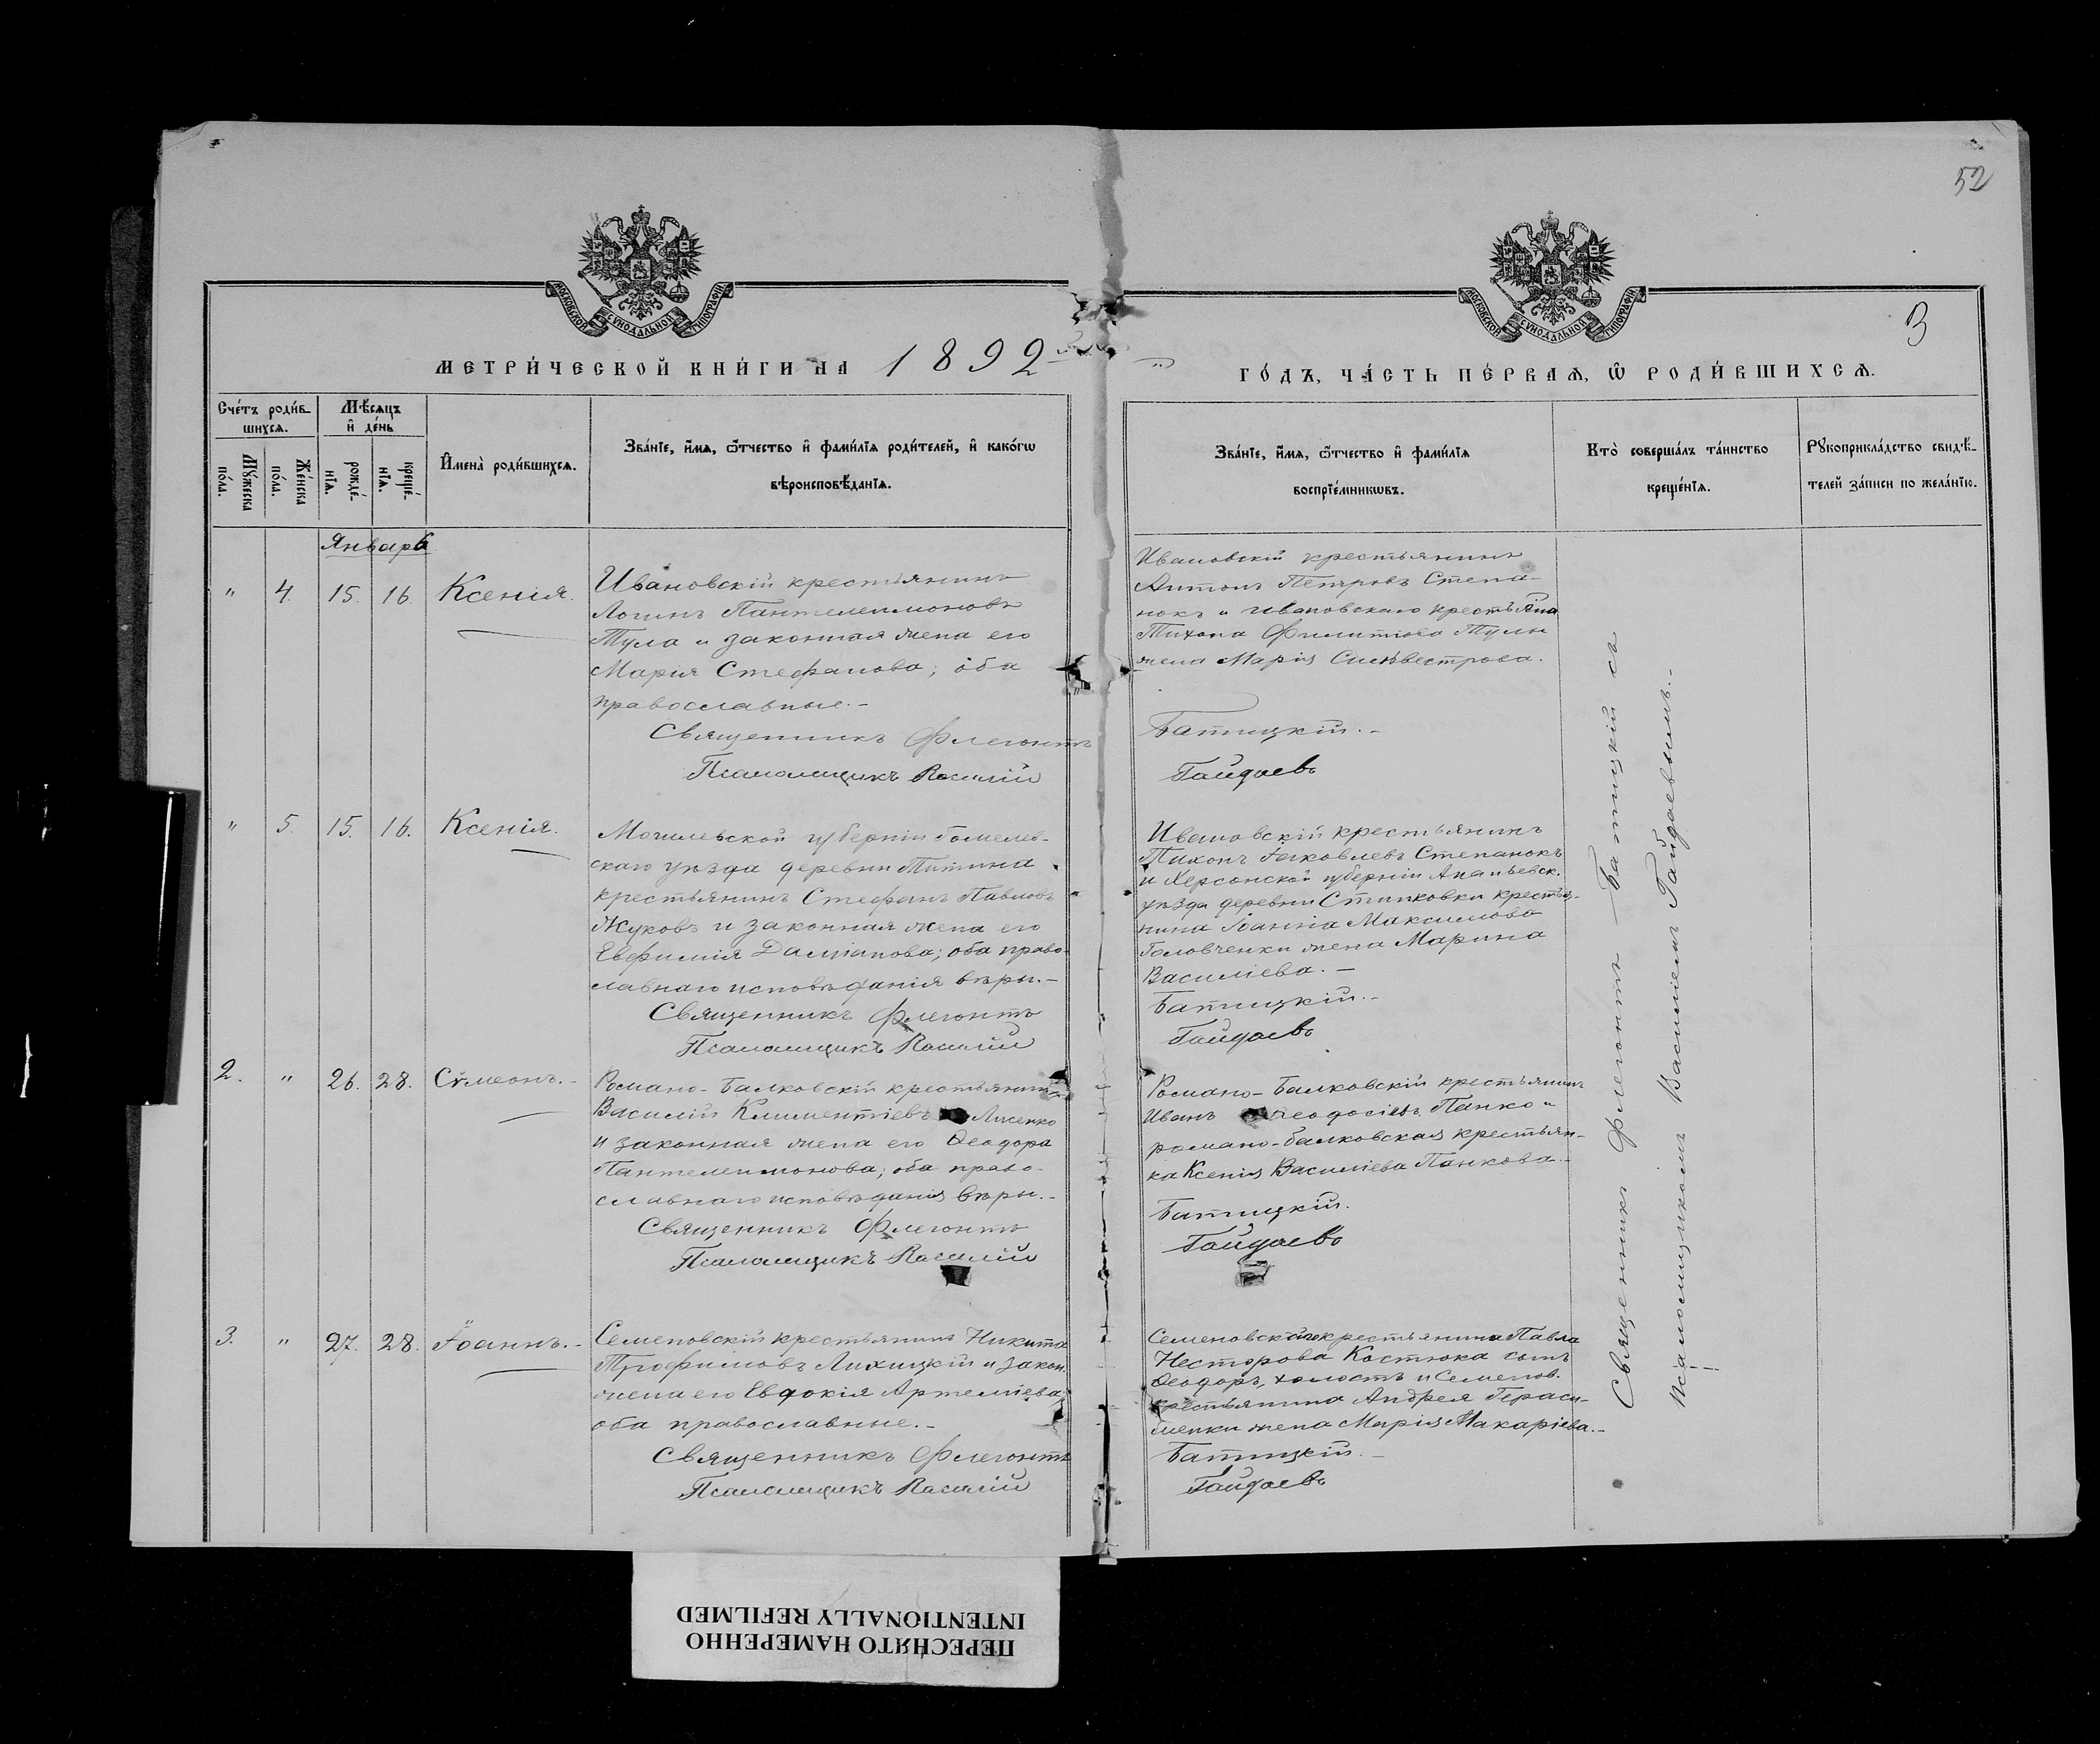 52
МОСКОВСКОЙ СУНОДАЛЬНОЙ ТИПОГРАФІИ
МОСКОВСКОЙ СУНОДАЛЬНОЙ ТИПОГРАФІИ
3
МЕТРИ́ЧЕСКОЙ КНИ́ГИ НА 1892
ГО́ДЪ, ЧА́СТЬ ПЕ́РВАѦ, Ѿ РОДИ́ВШИХСѦ.
Сче́тъ роди́в-
шихсѧ.
Мѣ́сяцъ
и҆ де́нь
Мꙋ́жеска
по́ла.
Же́нска
по́ла.
рожде́-
нїѧ.
креще́-
нїѧ.
И҆мена̀ роди́вшихсѧ.
Зва́нїе, и҆́мѧ, ѻ҆́тчество и҆ фами́лїѧ роди́телей, и҆ како́гѡ
вѣроисповѣ́данїѧ.
Зва́нїе, и҆́мѧ, ѻ҆́тчество и҆ фами́лїѧ
воспрїе́мникѡвъ.
Кто̀ соверша́лъ та́инство
креще́нїѧ.
Рꙋкоприкла́дство свидѣ́-
телей за́писи по жела́нїю.
Января
" 4. 15. 16. Ксенія.
Ивановскій крестьянинъ
Логинъ Пантелеимоновъ
Тула и законная жена его
Марія Стефанова; оба
православные.-
Священникъ Флегонтъ
Псаломщикъ Василій
Ивановскій крестьянинъ
Антонъ Петровъ Степа-
нокъ и ивановскаго крестьянина
Тихона Филиппова Тулы
жена Марія Сильвестрова.
Батицкій.-
Гайдаевъ
" 5. 15. 16. Ксенія.
Могилевской губерніи Гомелев-
скаго уѣзда деревни Титина
крестьянинъ Стефанъ Павловъ
Жуковъ и законная жена его
Евфимія Даміанова; оба право-
славнаго исповѣданія вѣры.-
Священникъ Флегонтъ
Псаломщикъ Василій
Ивановскій крестьянинъ
Тихонъ Іаковлевъ Степанокъ
и Херсонской губерніи Ананьевск.
уѣзда деревни Стинковки крестья-
нина Іоанна Максимова
Головченки жена Марина
Василіева.-
Батицкій.-
Гайдаевъ
2. " 26. 28. Сѵмеонъ.-
Романо-Балковскій крестьянинъ
Василій Климентіевъ Лисенко
и законная жена его Ѳеодора
Пантелеимонова; оба право-
славнаго исповѣданія вѣры.-
Священникъ Флегонтъ
Псаломщикъ Василій
Романо-Балковскій крестьянинъ
Иванъ Ѳеодосіевъ Панко и
романо-балковская крестьян-
ка Ксенія Василіева Панкова.-
Батицкій.
Гайдаевъ
3. " 27. 28. Іоаннъ.-
Семеновскій крестьянинъ Никита
Трофимовъ Лихицкій и закон.
жена его Евдокія Артеміева;
оба православные.-
Священникъ Флегонтъ
Псаломщикъ Василій
Семеновскаго крестьянина Павла
Несторова Костюка сынъ
Ѳеодоръ, холостъ и Семенов.
крестьянина Андрея Гераси-
менки жена Марія Макаріева.-
Батицкій.-
Гайдаевъ
Священникъ Флегонтъ Батицкій съ
псаломщикомъ Василіемъ Гайдаевымъ.-
ПЕРЕСНЯТО НАМЕРЕННО
INTENTIONALLY REFILMED